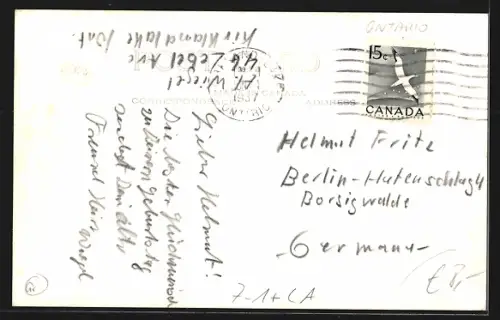 ONTARIO
15c
CANADA
ONTARIO
1957
CORRESPONDENCE
ADDRESS
46 Zebel Ave
Kirklandlake Ont.
Lieber Helmut!
Die besten Glückwünsche
zu Deinem Geburtstag
sendet Dein alter
Freund Heinz
Wiegel
Helmut Fritz
Berlin-Hutenschlag 4
Borsigwalde
Germany
7-1+CA